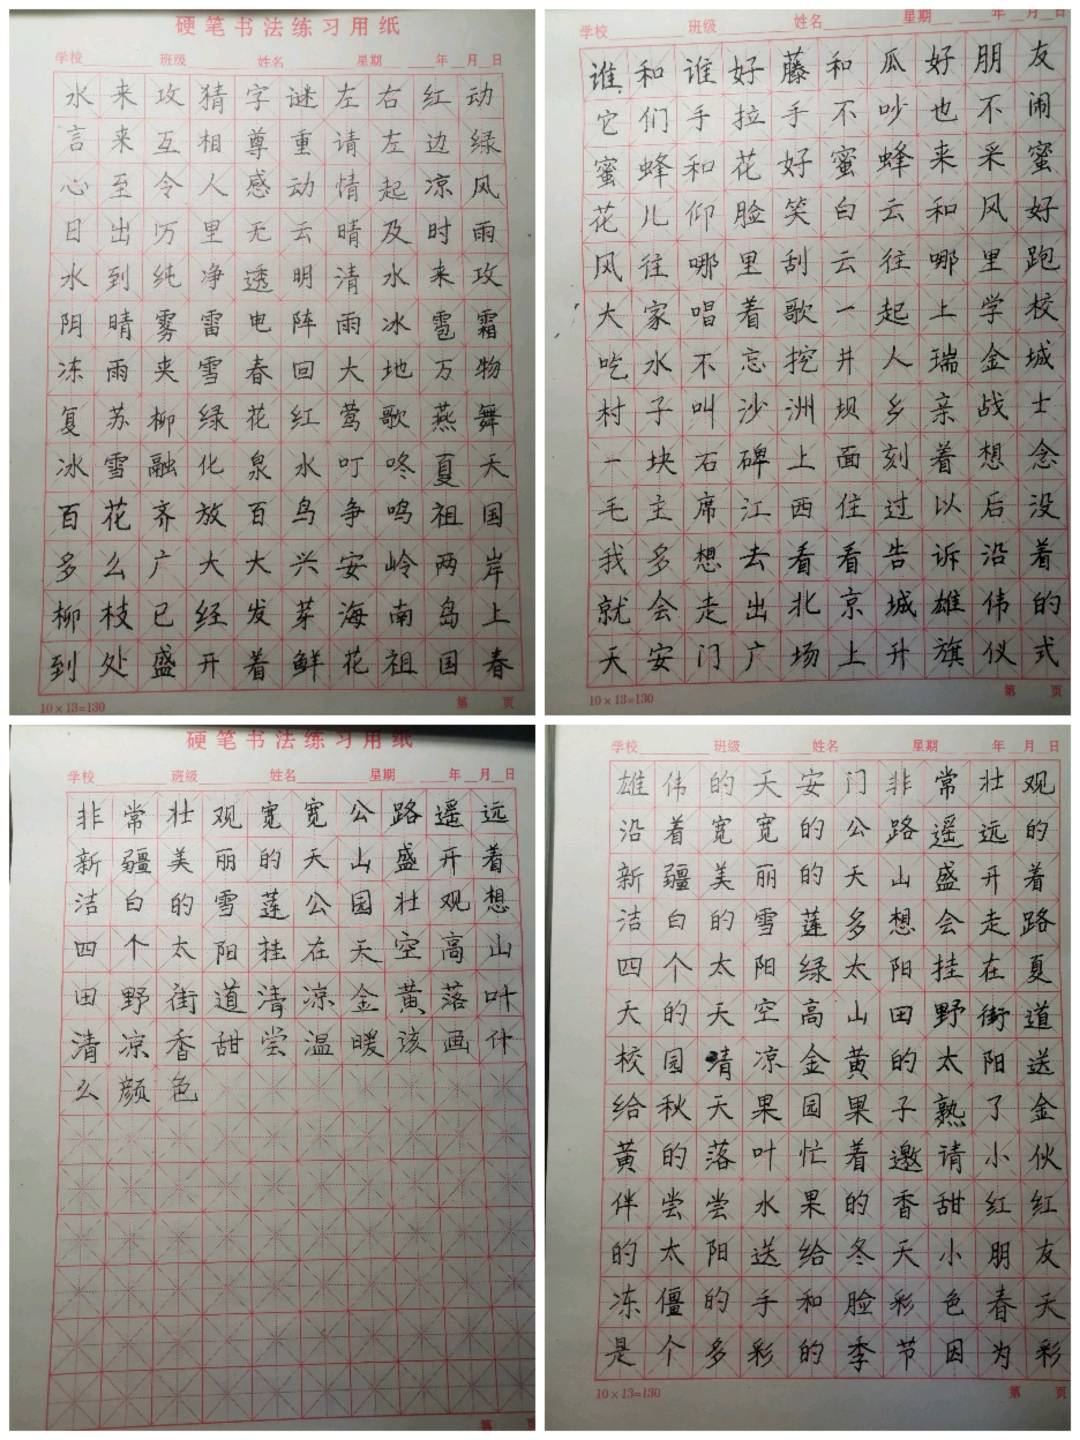 硬笔书法练习用纸
学校 班级 姓名 星期 年 月 日
水来攻猜字谜左右红动
言来互相尊重请左边绿
心至令人感动情起凉风
日出万里无云晴及时雨
水到纯净透明清水来攻
阴晴雾雷电阵雨冰雹霜
冻雨夹雪春回大地万物
复苏柳绿花红莺歌燕舞
冰雪融化泉水叮咚夏天
百花齐放百鸟争鸣祖国
多么广大大兴安岭两岸
柳枝已经发芽海南岛上
到处盛开着鲜花祖国春
10×13=130
第 页
学校 班级 姓名 星期 年 月 日
谁和谁好藤和瓜好朋友
它们手拉手不吵也不闹
蜜蜂和花好蜜蜂来采蜜
花儿仰脸笑白云和风好
风往哪里刮云往哪里跑
大家唱着歌一起上学校
吃水不忘挖井人瑞金城
村子叫沙洲坝乡亲战士
一块石碑上面刻着想念
毛主席江西住过以后没
我多想去看看告诉沿着
就会走出北京城雄伟的
天安门广场上升旗仪式
10×13=130
第 页
硬笔书法练习用纸
学校 班级 姓名 星期 年 月 日
非常壮观宽宽公路遥远
新疆美丽的天山盛开着
洁白的雪莲公园壮观想
四个太阳挂在天空高山
田野街道清凉金黄落叶
清凉香甜尝温暖该画什
么颜色
第 页
学校 班级 姓名 星期 年 月 日
雄伟的天安门非常壮观
沿着宽宽的公路遥远的
新疆美丽的天山盛开着
洁白的雪莲多想会走路
四个太阳绿太阳挂在夏
天的天空高山田野街道
校园清凉金黄的太阳送
给秋天果园果子熟了金
黄的落叶忙着邀请小伙
伴尝尝水果的香甜红红
的太阳送给冬天小朋友
冻僵的手和脸彩色春天
是个多彩的季节因为彩
10×13=130
第 页